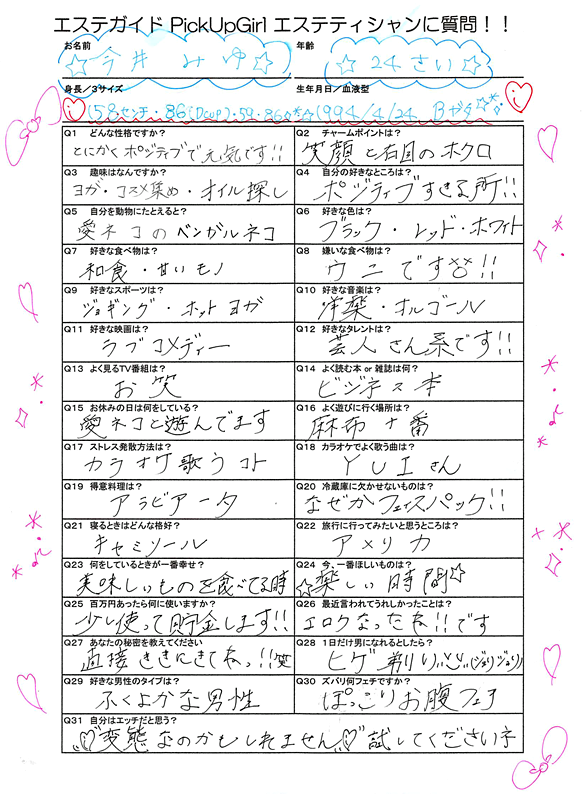 エステガイド PickUpGirl エステティシャンに質問！！
お名前
☆今井 みゆ☆
年齢
☆24さい☆
身長／3サイズ
158センチ・86(Dcup)・59・86
生年月日／血液型
1994/4/24 Bガタ
Q1 どんな性格ですか？
とにかくポジティブで元気です!!
Q2 チャームポイントは？
笑顔と右目のホクロ
Q3 趣味はなんですか？
ヨガ・コスメ集め・オイル探し
Q4 自分の好きなところは？
ポジティブすぎる所!!
Q5 自分を動物にたとえると？
愛ネコのベンガルネコ
Q6 好きな色は？
ブラック・レッド・ホワイト
Q7 好きな食べ物は？
和食・甘いモノ
Q8 嫌いな食べ物は？
ウニです!!
Q9 好きなスポーツは？
ジョギング・ホットヨガ
Q10 好きな音楽は？
洋楽・オルゴール
Q11 好きな映画は？
ラブコメディー
Q12 好きなタレントは？
芸人さん系です!!
Q13 よく見るTV番組は？
お笑
Q14 よく読む本 or 雑誌は何？
ビジネス本
Q15 お休みの日は何をしている？
愛ネコと遊んでます
Q16 よく遊びに行く場所は？
麻布十番
Q17 ストレス発散方法は？
カラオケ歌うコト
Q18 カラオケでよく歌う曲は？
YUIさん
Q19 得意料理は？
アラビアータ
Q20 冷蔵庫に欠かせないものは？
なぜかフェイスパック!!
Q21 寝るときはどんな格好？
キャミソール
Q22 旅行に行ってみたいと思うところは？
アメリカ
Q23 何をしているときが一番幸せ？
美味しいものを食べてる時
Q24 今、一番ほしいものは？
☆楽しい時間☆
Q25 百万円あったら何に使いますか？
少し使って貯金します!!
Q26 最近言われてうれしかったことは？
エロくなったね!!です
Q27 あなたの秘密を教えてください
直接ききにきてねっ!!笑
Q28 1日だけ男になれるとしたら？
ヒゲ剃り(ジョリジョリ)
Q29 好きな男性のタイプは？
ふくよかな男性
Q30 ズバリ何フェチですか？
ぽっこりお腹フェチ
Q31 自分はエッチだと思う？
変態なのかもしれません♡試してくださいネ